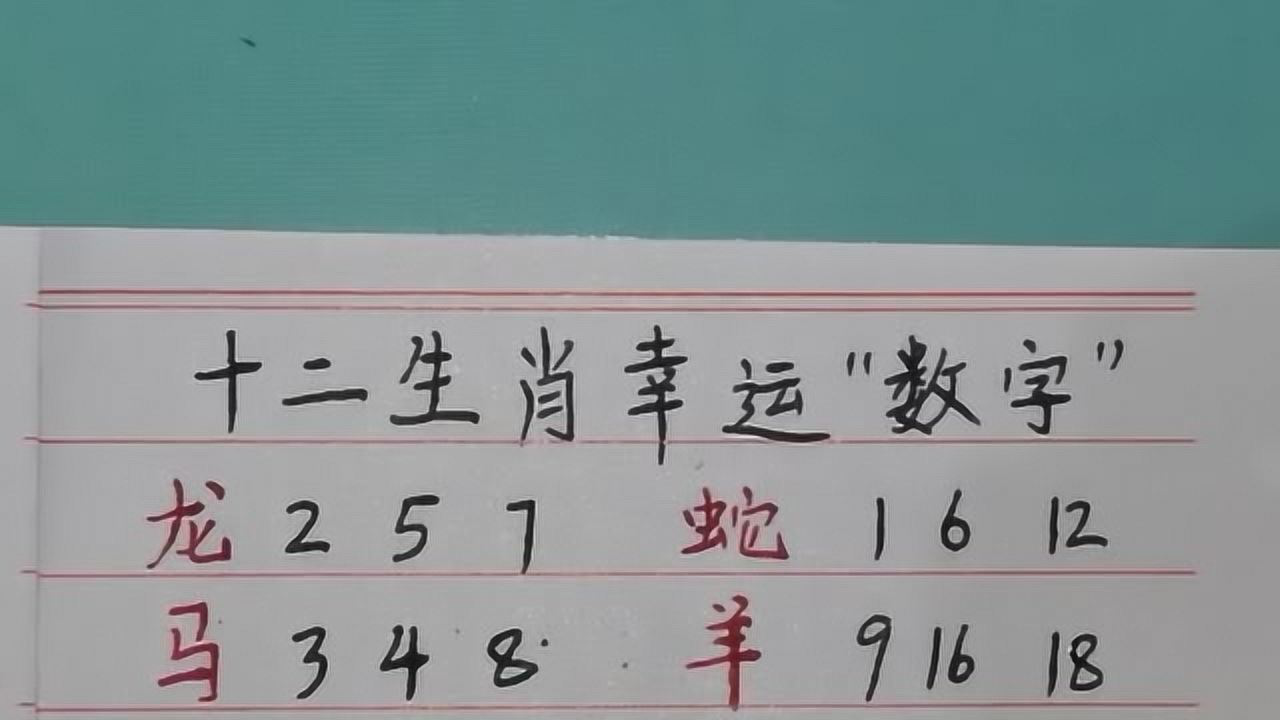 十二生肖幸运"数字"
龙 2 5 7 蛇 1 6 12
马 3 4 8 羊 9 16 18